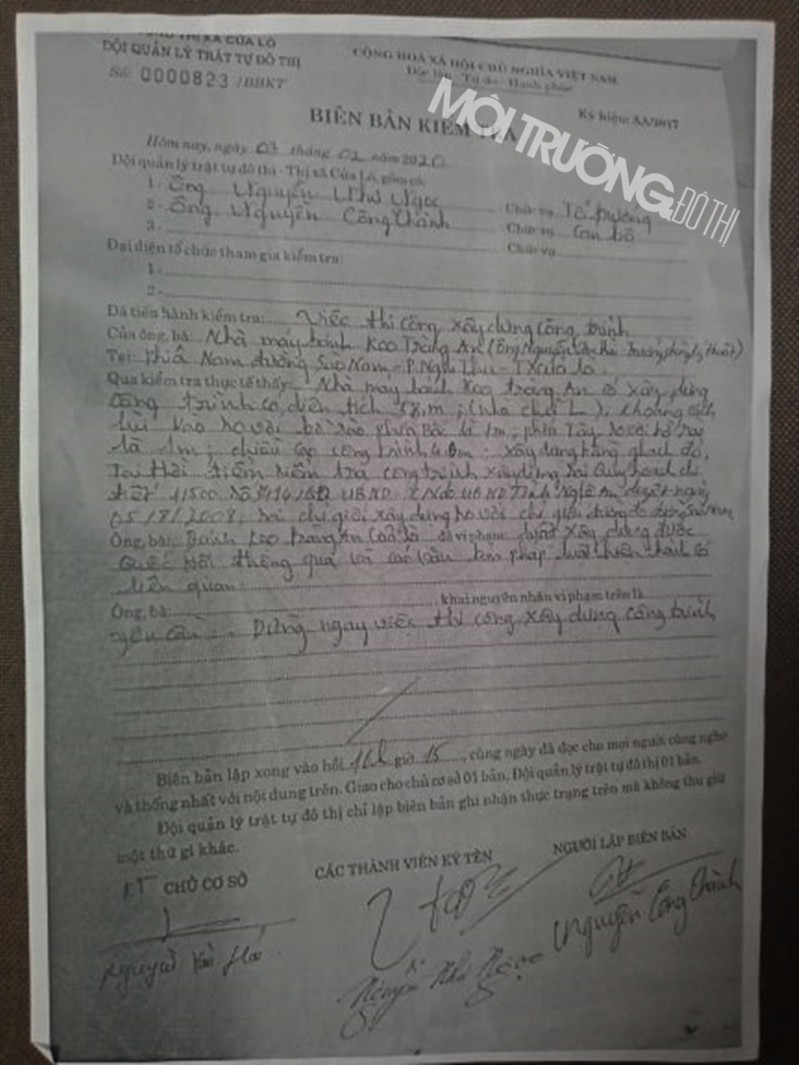 THỊ XÃ CỬA LÒ
ĐỘI QUẢN LÝ TRẬT TỰ ĐÔ THỊ
Số: 0000823 /BBKT
CỘNG HOÀ XÃ HỘI CHỦ NGHĨA VIỆT NAM
Độc lập - Tự do - Hạnh phúc
Ký hiệu: AA/2017
MÔI TRƯỜNG
ĐÔ THỊ
BIÊN BẢN KIỂM TRA
Hôm nay, ngày 03 tháng 02 năm 2020
Đội quản lý trật tự đô thị - Thị xã Cửa Lò, gồm có:
1 - Ông Nguyễn Như Ngọc Chức vụ Tổ trưởng
2 - Ông Nguyễn Công Thành Chức vụ Cán bộ
3 - Chức vụ
Đại diện tổ chức tham gia kiểm tra:
1 -
2 -
Đã tiến hành kiểm tra: Việc thi công xây dựng công trình
Của ông, bà: Nhà máy bánh kẹo Tràng An (Ông Nguyễn Văn - Trưởng phòng kỹ thuật)
Tại: Phía Nam đường Sào Nam - P. Nghi Thu - TX Cửa Lò
Qua kiểm tra thực tế thấy: Nhà máy bánh kẹo Tràng An có xây dựng
công trình có diện tích m; (nhà chữ L), khoảng cách
lùi vào so với bờ rào phía Bắc là 1m, phía Tây so với bờ rào
là 1m; chiều cao công trình m; xây dựng bằng gạch đỏ,
Tại thời điểm kiểm tra công trình xây dựng sai quy hoạch chi
tiết 1/500 UBND UBND Tỉnh Nghệ An duyệt ngày
05/8/2008, sai chỉ giới xây dựng so với chỉ giới đường đỏ đường Sào Nam
Ông, bà: Bánh kẹo Tràng An Cửa Lò đã vi phạm luật xây dựng được
Quốc Hội thông qua và các văn bản pháp luật hiện hành có
liên quan
Ông, bà: , khai nguyên nhân vi phạm trên là
yêu cầu Dừng ngay việc thi công xây dựng công trình
Biên bản lập xong vào hồi giờ 15, cùng ngày đã đọc cho mọi người cùng nghe
và thống nhất với nội dung trên. Giao cho chủ cơ sở 01 bản, Đội quản lý trật tự đô thị 01 bản.
Đội quản lý trật tự đô thị chỉ lập biên bản ghi nhận thực trạng trên mà không thu giữ
một thứ gì khác.
KT CHỦ CƠ SỞ
CÁC THÀNH VIÊN KÝ TÊN
NGƯỜI LẬP BIÊN BẢN
Nguyễn Văn
Nguyễn Như Ngọc
Nguyễn Công Thành